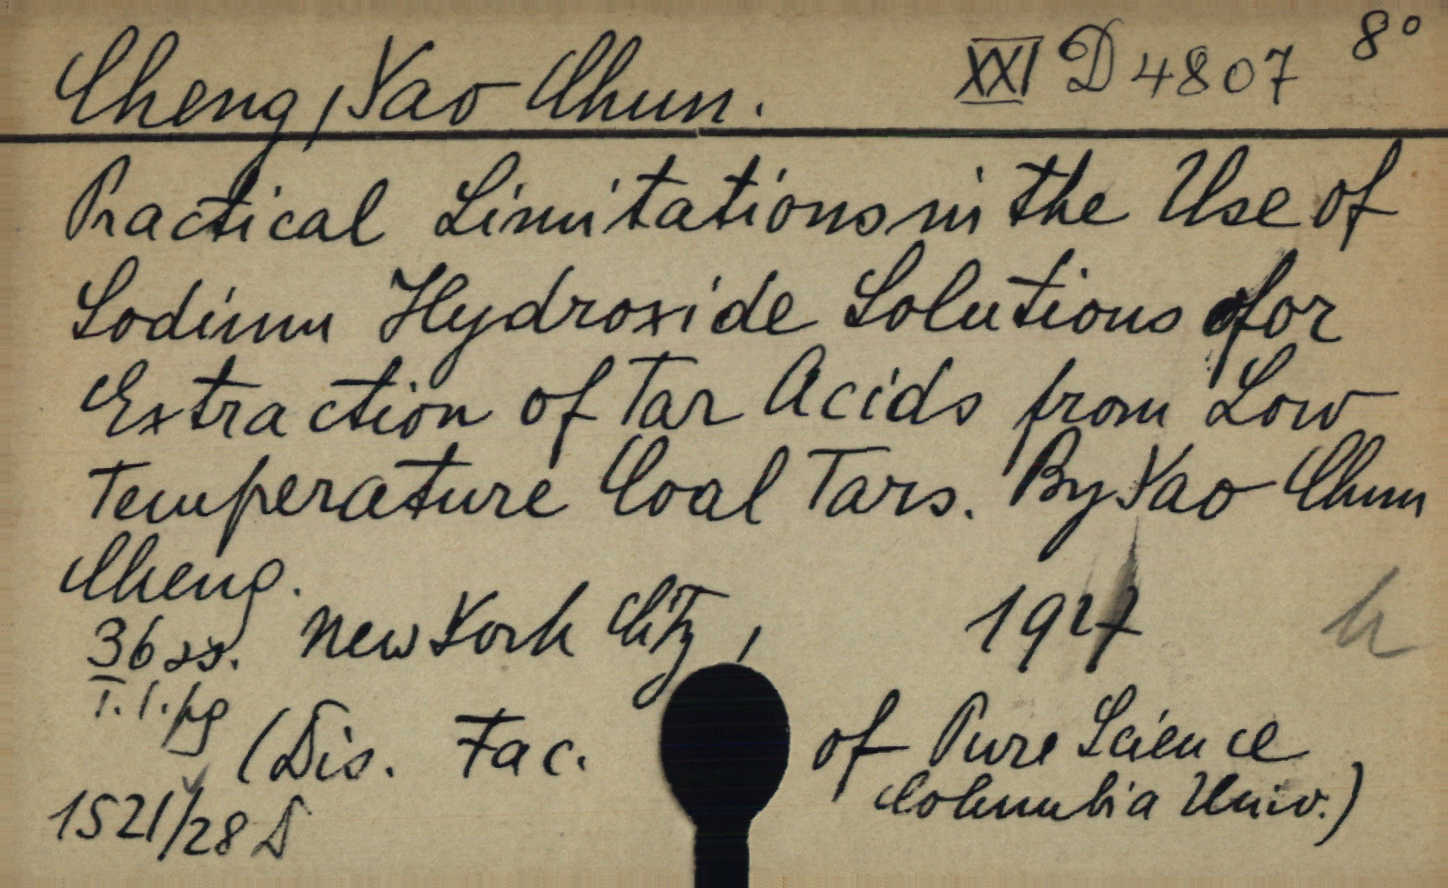 Cheng, Yao Chun. XXI D 4807 8°
Practical Limitations in the Use of
Sodium Hydroxide Solutions for
Extraction of Tar Acids from Low
Temperature Coal Tars. By Yao Chun
Cheng.
36 ss. New York City, 1927
T. 1. pg
(Dis. Fac. of Pure Science
Columbia Univ.)
1521/28 D